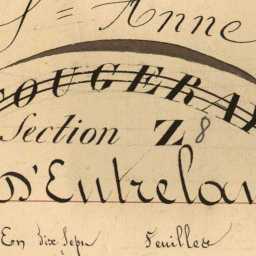 S= Anne
OUGERA
Section Z 8
D'Entrela
En dix Sept Feuilles